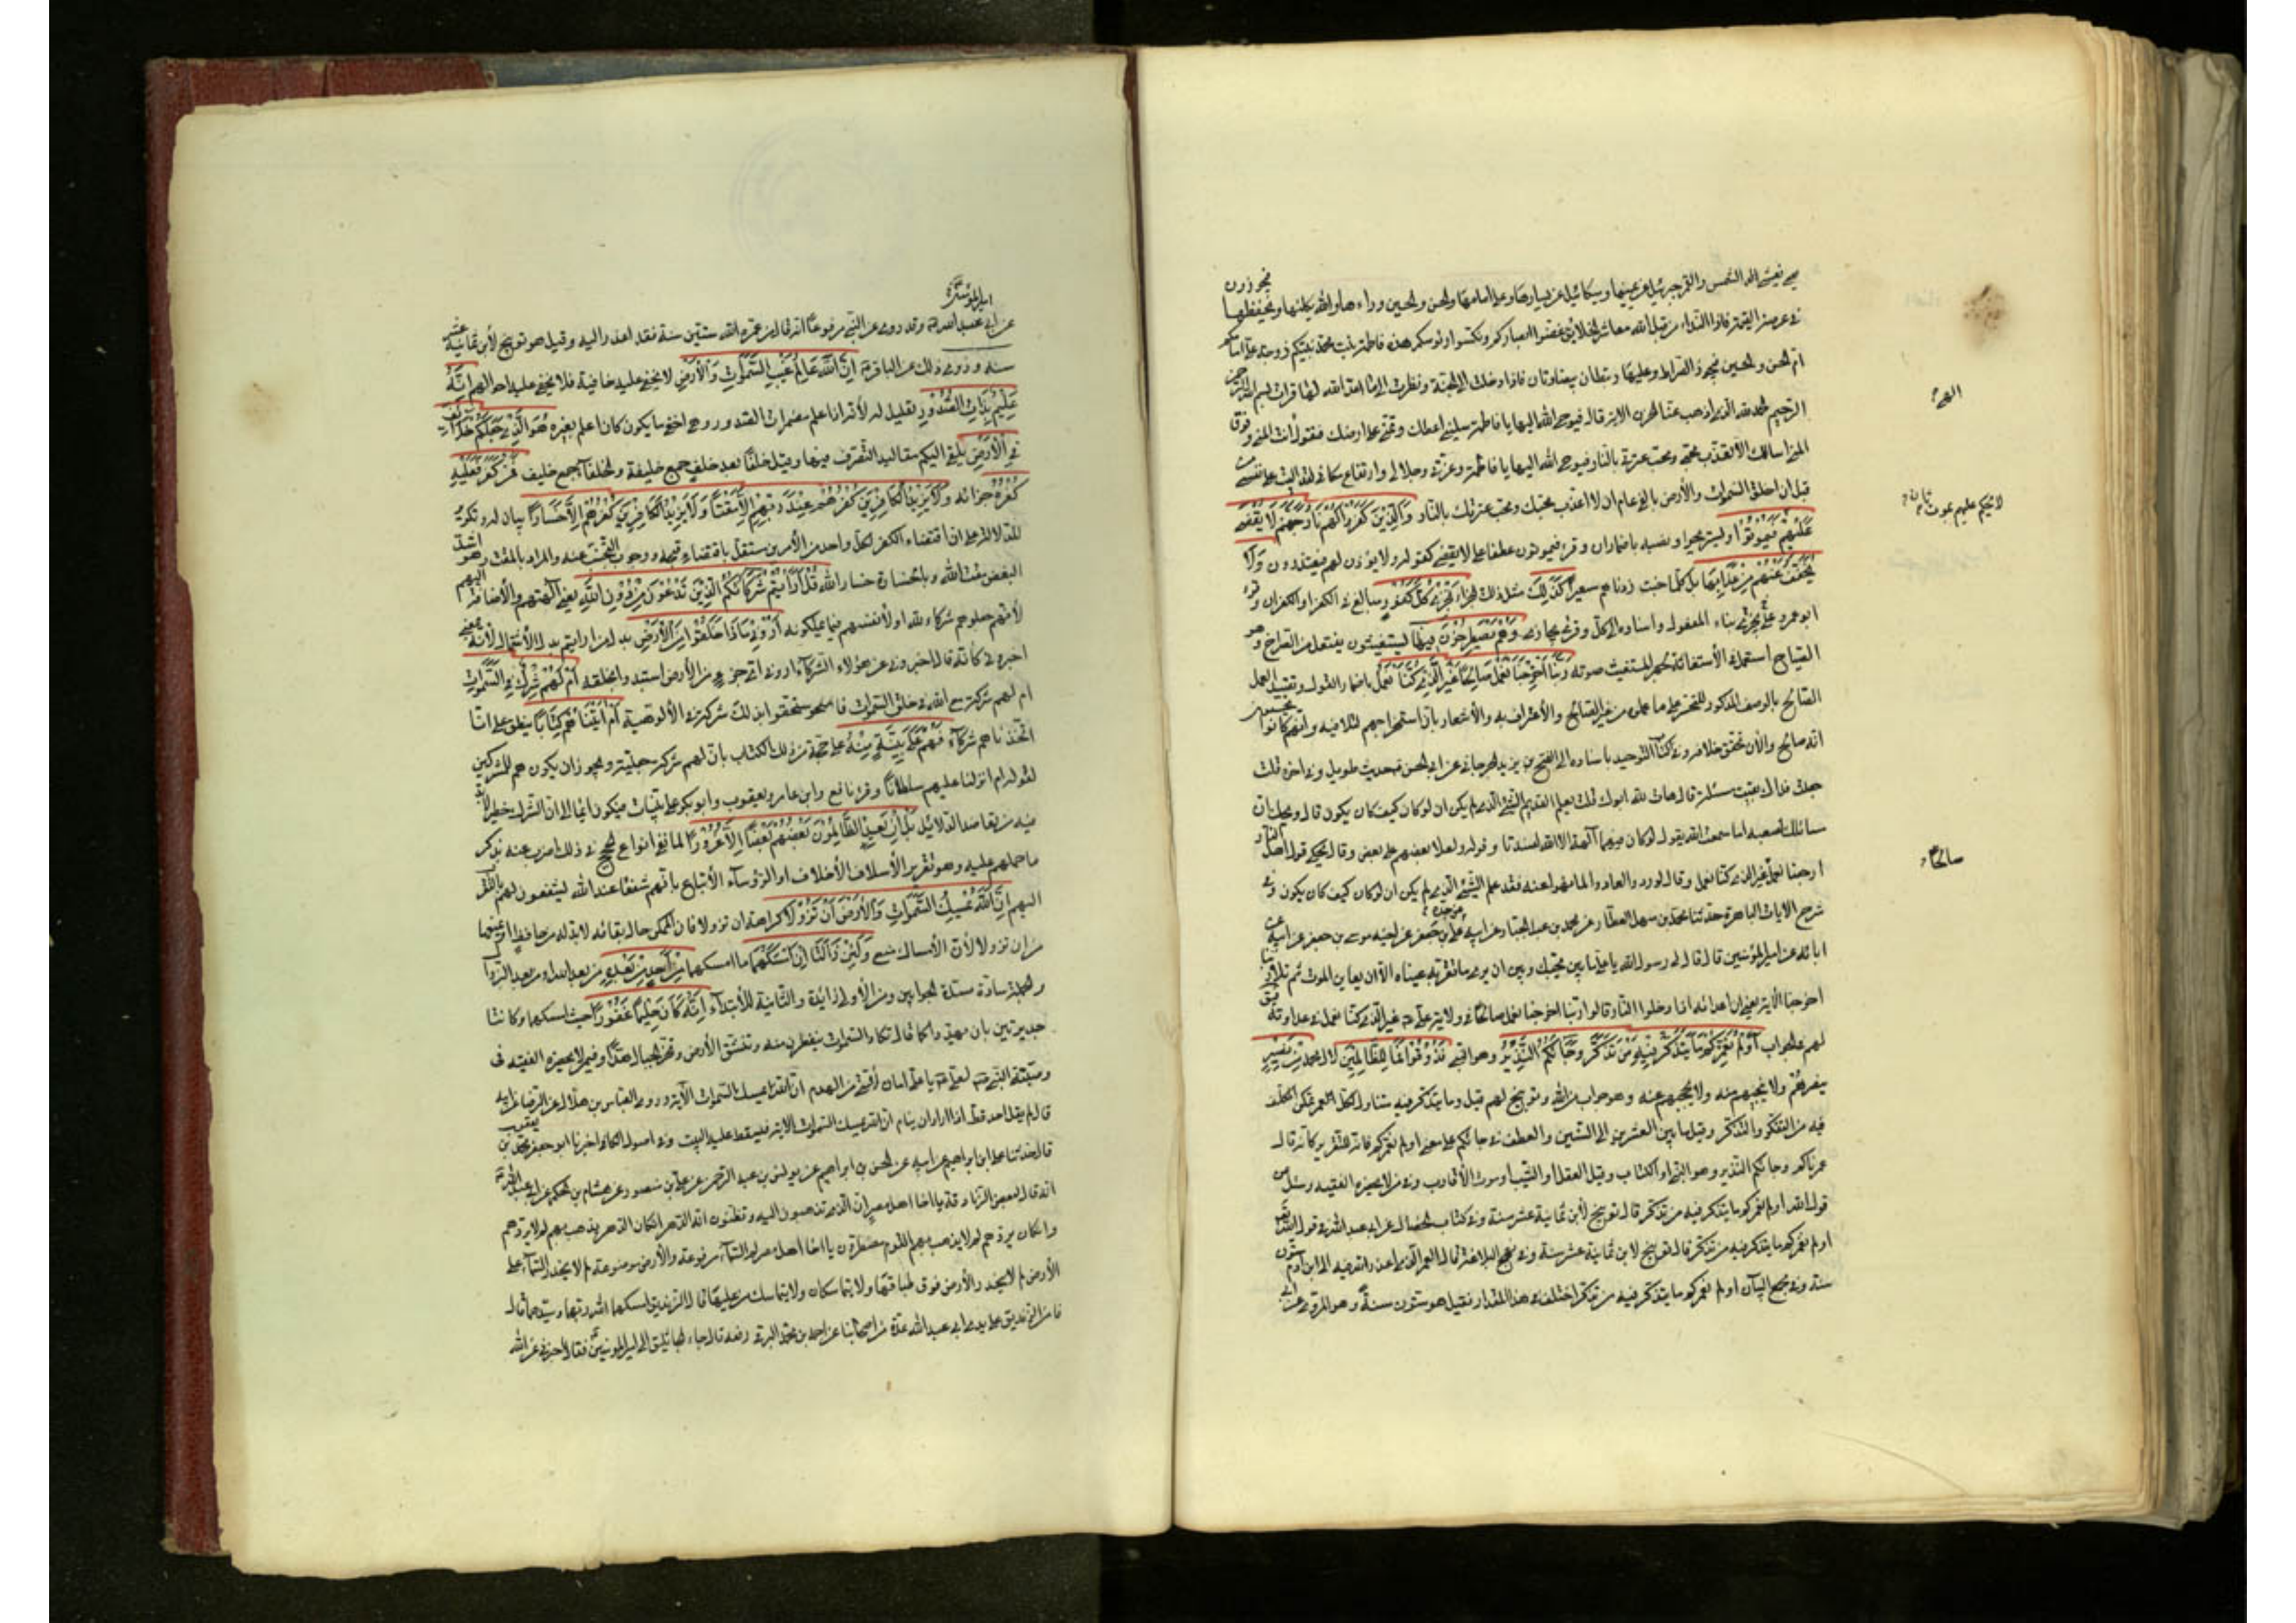 في عرصة القيمة فاذا النداء من قبل الله معاشر الخلايق غضوا ابصاركم ونكسوا رؤسكم هذه فاطمة بنت محمد نبيكم زوجة علي امامكم
ام الحسن والحسين فتجوز الصراط وعليها ريطتان بيضاوتان فاذا دخلت الجنة ونظرت الى ما اعد الله لها قرات بسم الله الرحمن
الرحيم الحمد لله الذي اذهب عنا الحزن الآية قال فيوحي الله اليها يا فاطمة سليني اعطك وتمني علي ارضك فتقول انت المنى وفوق
المنى اسالك الا تعذب محبي ومحب عترتي بالنار فيوحي الله اليها يا فاطمة وعزتي وجلالي وارتفاع مكاني لقد اليت على نفسي من
قبل ان اخلق السموات والأرض بالفي عام ان لا اعذب محبك ومحب عترتك بالنار وَالَّذِينَ كَفَرُوا لَهُمْ نَارُ جَهَنَّمَ لَا يُقْضَى
عَلَيْهِمْ فَيَمُوتُوا وليستريحوا ونصبه باضمار ان وقرئ فيموتون عطفا على لا يقضى كقوله ولا يؤذن لهم فيعتذرون وَلَا
يُخَفَّفُ عَنْهُمْ مِنْ عَذَابِهَا بل كلما خبت زدناهم سعيرا كَذَلِكَ مثل ذلك الجزاء نَجْزِي كُلَّ كَفُورٍ مبالغ في الكفر او الكفران وقرء
ابو عمرو يجزى على بناء المفعول واسناده الى كل وقرئ يجازى وَهُمْ يَصْطَرِخُونَ فِيهَا يستغيثون يفتعلون من الصراخ وهو
الصياح استعمل في الأستغاثة لجهر المستغيث صوته رَبَّنَا أَخْرِجْنَا نَعْمَلْ صَالِحًا غَيْرَ الَّذِي كُنَّا نَعْمَلُ باضمار القول وتقييد العمل
الصالح بالوصف المذكور للتحسر على ما عملوه من غير الصالح والأعتراف به والأشعار بان استخراجهم لتلافيه وانهم كانوا يحسبون
انه صالح والأن تحقق خلافه وفي كتاب التوحيد باسناده الى الفتح بن يزيد الجرجاني عن ابي الحسن حديث طويل وفي اخره قلت
جعلت فداك بقيت مسئلة قال هات لله ابوك قلت يعلم القديم الشئ الذي لم يكن ان لو كان كيف كان يكون قال ويحك ان
مسائلك لصعبة اما سمعت الله يقول لو كان فيهما آلهة الا الله لفسدتا وقوله ولعلا بعضهم على بعض وقال يحكي قول اهل النار
ارجعنا نعمل غير الذي كنا نعمل وقال ولو ردوا لعادوا لما نهوا عنه فقد علم الشئ الذي لم يكن ان لو كان كيف كان يكون وفي
شرح الايات الباهرة حدثنا محمد بن سهل العطار عن
ابائه عن امير المؤمنين قال قال لي رسول الله يا علي ما بين من يحبك وبين ان يرى ما تقر به عيناه الا ان يعاين الموت ثم تلا ربنا
اخرجنا الآية يعني ان اعدائه اذا دخلوا النار قالوا ربنا اخرجنا نعمل صالحا في ولاية علي غير الذي كنا نعمل في عداوته فيق
لهم في الجواب أَوَلَمْ نُعَمِّرْكُمْ مَا يَتَذَكَّرُ فِيهِ مَنْ تَذَكَّرَ وَجَاءَكُمُ النَّذِيرُ وهو النبي فَذُوقُوا فَمَا لِلظَّالِمِينَ لال محمد مِنْ نَصِيرٍ
ينصرهم ولا ينجيهم منه ولا يحجبهم عنه وهو جواب من الله وتوبيخ لهم قيل وما يتذكر فيه متناول كل عمر تمكن المكلف
فيه من التفكر والتذكر وقيل ما بين العشرين الى الستين والعطف في جائكم على معنى اولم نعمركم فانه للتقرير كانه قال
عمرناكم وجائكم النذير وهو النبي او الكتاب وقيل العقل او الشيب او موت الأقارب وفي من لا يحضره الفقيه وسئل عن
قول الله اولم نعمركم ما يتذكر فيه من تذكر قال توبيخ لأبن ثمانية عشر سنة وفي كتاب الخصال عن ابي عبد الله في قول الله
اولم نعمركم ما يتذكر فيه من تذكر قال توبيخ لابن ثمانية عشر سنة وفي نهج البلاغة قال العمر الذي اعذر الله فيه الى ابن آدم ستون
سنة وفي مجمع البيان اولم نعمركم ما يتذكر فيه من تذكر اختلف في هذا المقدار فقيل هو ستون سنة وهو المروي عن
لا يحكم عليهم بموت ثان
صالحا
امير المؤمنين
وقد روي عن النبي مرفوعا انه قال من عمره الله ستين سنة فقد اعذر اليه وقيل هو توبيخ لأبن ثمانية عشر
سنة وروي ذلك عن الباقر إِنَّ اللَّهَ عَالِمُ غَيْبِ السَّمَوَاتِ وَالْأَرْضِ لا يخفى عليه خافية فلا يخفى عليه احوالهم إِنَّهُ
عَلِيمٌ بِذَاتِ الصُّدُورِ تعليل له لأنه اذا علم مضمرات الصدور وهي اخفى ما يكون كان اعلم بغيره هُوَ الَّذِي جَعَلَكُمْ خَلَائِفَ
فِي الْأَرْضِ يلقى اليكم مقاليد التصرف فيها وقيل خلفا بعد خلف جمع خليفة والخلفاء جمع خليف فَمَنْ كَفَرَ فَعَلَيْهِ
كُفْرُهُ جزائه وَلَا يَزِيدُ الْكَافِرِينَ كُفْرُهُمْ عِنْدَ رَبِّهِمْ إِلَّا مَقْتًا وَلَا يَزِيدُ الْكَافِرِينَ كُفْرُهُمْ إِلَّا خَسَارًا بيان له وتكرير
للدلالة على ان اقتضاء الكفر لكل واحد من الأمرين مستقل باقتضاء قبحه ووجوب التجنب عنه والمراد بالمقت وهو اشد
البغض مقت الله وبالخسارة خسار الله قُلْ أَرَأَيْتُمْ شُرَكَاءَكُمُ الَّذِينَ تَدْعُونَ مِنْ دُونِ اللَّهِ يعني آلهتهم والأضافة اليهم
لأنهم جعلوهم شركاء لله او لأنفسهم فيما يملكونه أَرُونِي مَاذَا خَلَقُوا مِنَ الْأَرْضِ بدل من ارايتم بدل الأشتمال لأنه بمعنى
اخبروني كانه قال اخبروني عن هؤلاء الشركاء اروني اي جزء من الأرض استبدوا بخلقه أَمْ لَهُمْ شِرْكٌ فِي السَّمَوَاتِ
ام لهم شركة مع الله في خلق السموات فاستحقوا بذلك شركة في الألوهية أَمْ آتَيْنَاهُمْ كِتَابًا ينطق على انا
اتخذناهم شركاء فَهُمْ عَلَى بَيِّنَةٍ مِنْهُ على حجة من ذلك الكتاب بان لهم شركة جعلية ويجوز ان يكون هم للمشركين
لقوله ام انزلنا عليهم سلطانا وقرء نافع وابن عامر ويعقوب وابو بكر على بينات فيكون ايماء الى ان الشرك خطير لابد
فيه من تعاضد الدلائل بَلْ إِنْ يَعِدُ الظَّالِمُونَ بَعْضُهُمْ بَعْضًا إِلَّا غُرُورًا لما نفى انواع الحجج في ذلك اضرب عنه بذكر
ما حملهم عليه وهو تغرير الأسلاف الأخلاف او الرؤساء الأتباع بانهم شفعاء عند الله يشفعون لهم بالتقرب
اليهم إِنَّ اللَّهَ يُمْسِكُ السَّمَوَاتِ وَالْأَرْضَ أَنْ تَزُولَا كراهة ان تزولا فان الممكن حال بقائه لابد له من حافظ او يمنعهما
من ان تزولا لأن الأمساك منع وَلَئِنْ زَالَتَا إِنْ أَمْسَكَهُمَا ما امسكهما مِنْ أَحَدٍ مِنْ بَعْدِهِ من بعد الله او من بعد الزوال
والجملة سادة مسد الجوابين ومن الأولى زائدة والثانية للأبتداء إِنَّهُ كَانَ حَلِيمًا غَفُورًا حيث امسكهما وكانتا
جديرتين بان تهدا كما قال تكاد السموات يتفطرن منه وتنشق الأرض وتخر الجبال هدا وفي من لا يحضره الفقيه في
وصية النبي لعلي يا علي امان لأمتي من الهدم ان الله يمسك السموات الآية وروى العباس بن هلال عن الرضا عن ابيه
قال لم يقل احد قط اذا اراد ان ينام ان الله يمسك السموات الآية فيسقط عليه البيت وفي اصول الكافي اخبرنا ابو جعفر محمد بن يعقوب
قال حدثنا علي بن ابراهيم عن ابيه عن الحسن بن ابراهيم عن يونس بن عبد الرحمن عن علي بن منصور عن هشام بن الحكم عن ابي عبد الله
انه قال لبعض الزنادقة يا اخا اهل مصر ان الذي تذهبون اليه وتظنون انه الدهر ان كان الدهر يذهب بهم لم لا يردهم
وان كان يردهم لم لا يذهب بهم القوم مضطرون يا اخا اهل مصر لم السماء مرفوعة والأرض موضوعة لم لا يخدر السماء على
الأرض لم لا يخدر الأرض فوق طباقها ولا يتماسكان ولا يتماسك من عليها قال الزنديق امسكهما الله ربهما وسيدهما قال
فامن الزنديق على يدي ابي عبد الله عدة من اصحابنا عن احمد بن محمد البرقي رفعه قال جاء الجاثليق الى امير المؤمنين فقال اخبرني عن الله